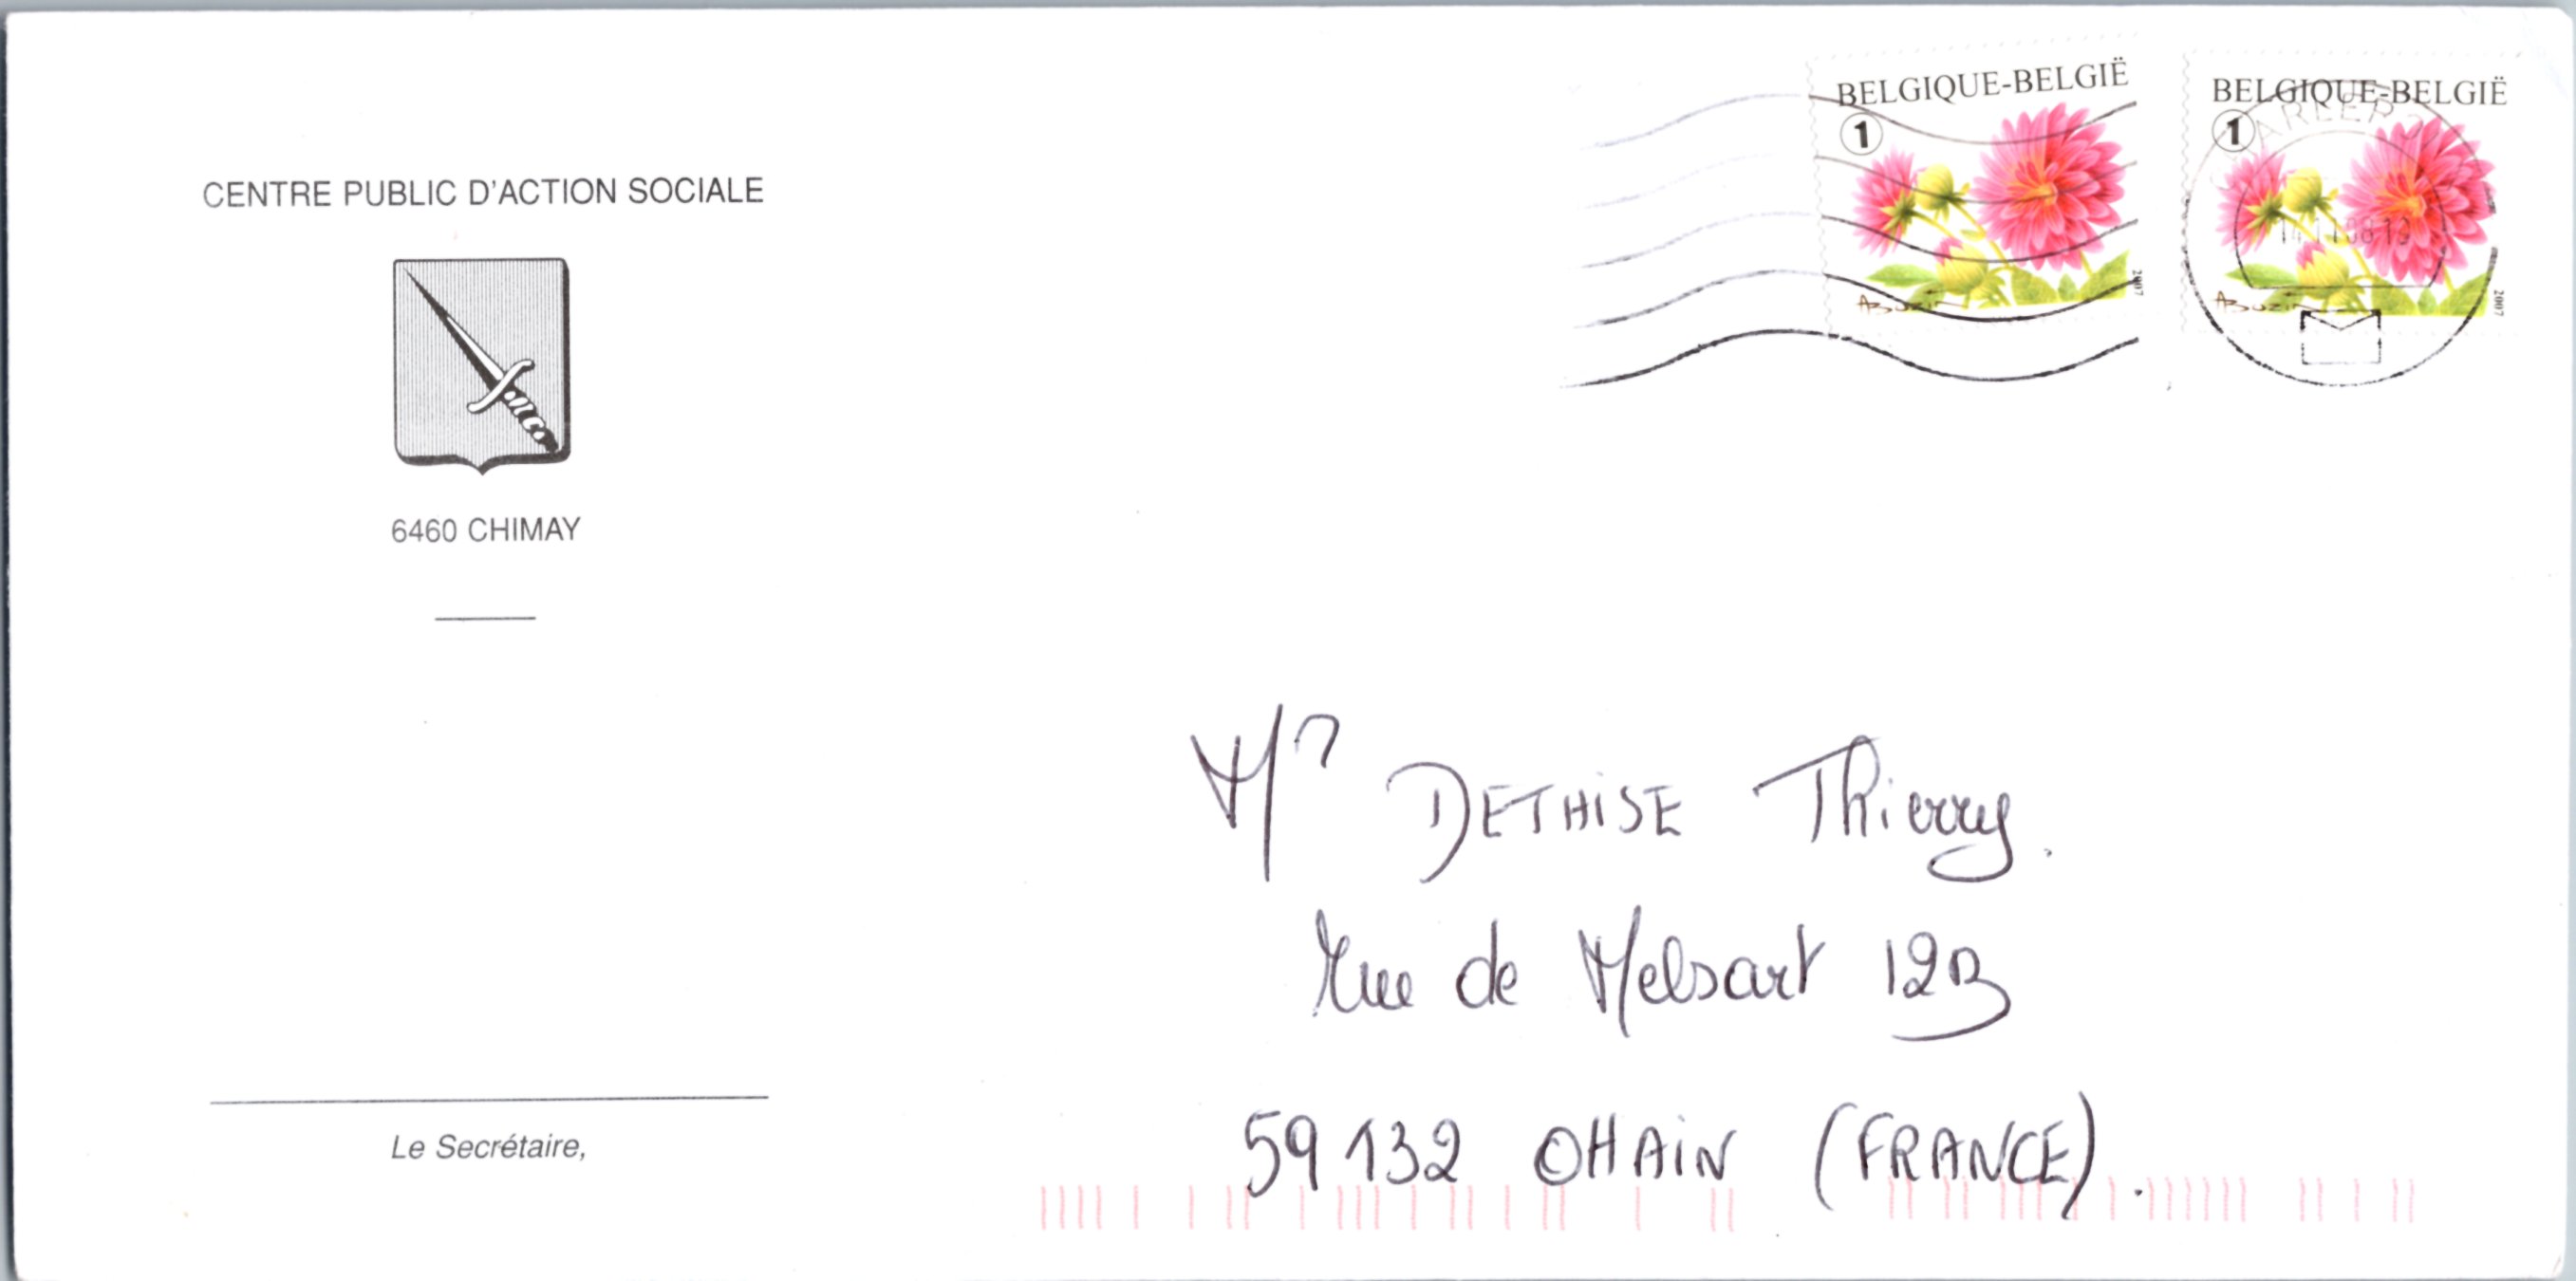 CENTRE PUBLIC D'ACTION SOCIALE
6460 CHIMAY
Le Secrétaire,
BELGIQUE-BELGIË
1
2007
BELGIQUE-BELGIË
1
2007
Mr DETHISE Thierry.
Rue de Melsart 12B
59132 OHAIN (FRANCE).